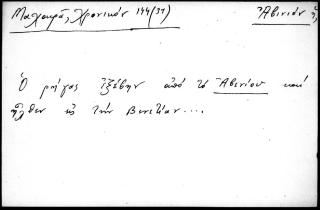 Μαχαιρᾶ, Χρονικόν 144(31) Ἀβινιόν ἡ
Ὁ ρήγας ἐξέβην ἀπὸ τὸ Ἀβενίου καὶ
ἦλθεν εἰς τὴν Βενετίαν....